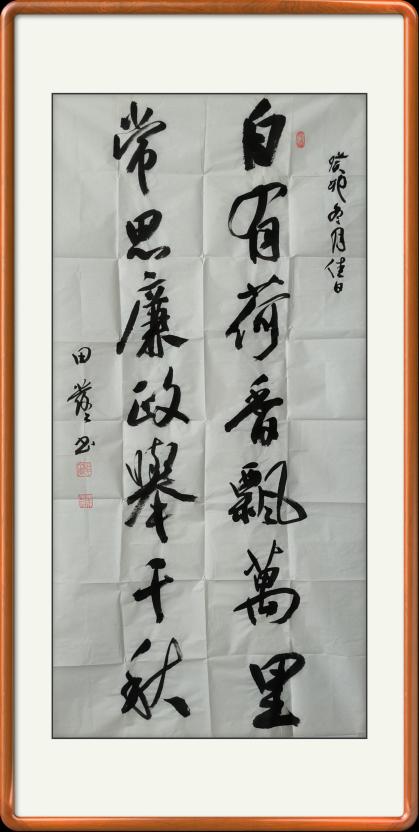 癸卯冬月佳日
自有荷香飄萬里
常思廉政舉千秋
田
书